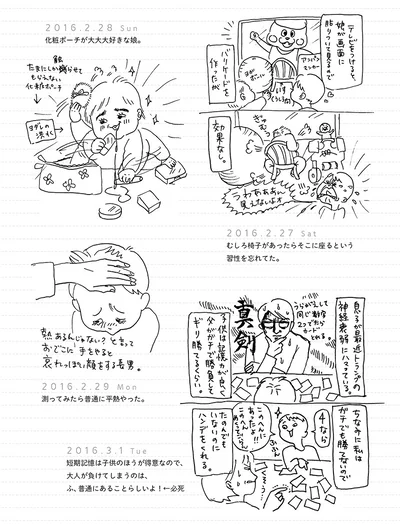 2016.2.28 Sun
化粧ポーチが大大大好きな娘。
たまにしか触らせて
もらえない
化粧ポーチ
ヨダレの
洪水
テレビをつけると
娘が画面に
貼りついて見るので
バリケードを
作ったが
いす
効果なし。
ぎゅむっ
うわあああん
見えないよォ
2016.2.27 Sat
むしろ椅子があったらそこに座るという
習性を忘れてた。
熱あるんじゃない?と言って
おでこに手をやると
哀れっぽい顔をする長男。
2016.2.29 Mon
測ってみたら普通に平熱やった。
息子が最近トランプの
神経衰弱にハマっている。
うらがえして
同じ数字
2つでたら
カード
とれる
真剣
子供は記憶力が良く
父がガチで勝負して
ギリ勝てるくらい。
ちなみに私は
ガチでも勝てないので
4なら
このへんに
あったよ!!
たのんでも
いないのに
ハンデをくれる。
2016.3.1 Tue
短期記憶は子供のほうが得意なので、
大人が負けてしまうのは、
ふ、普通にあることらしいよ!←必死